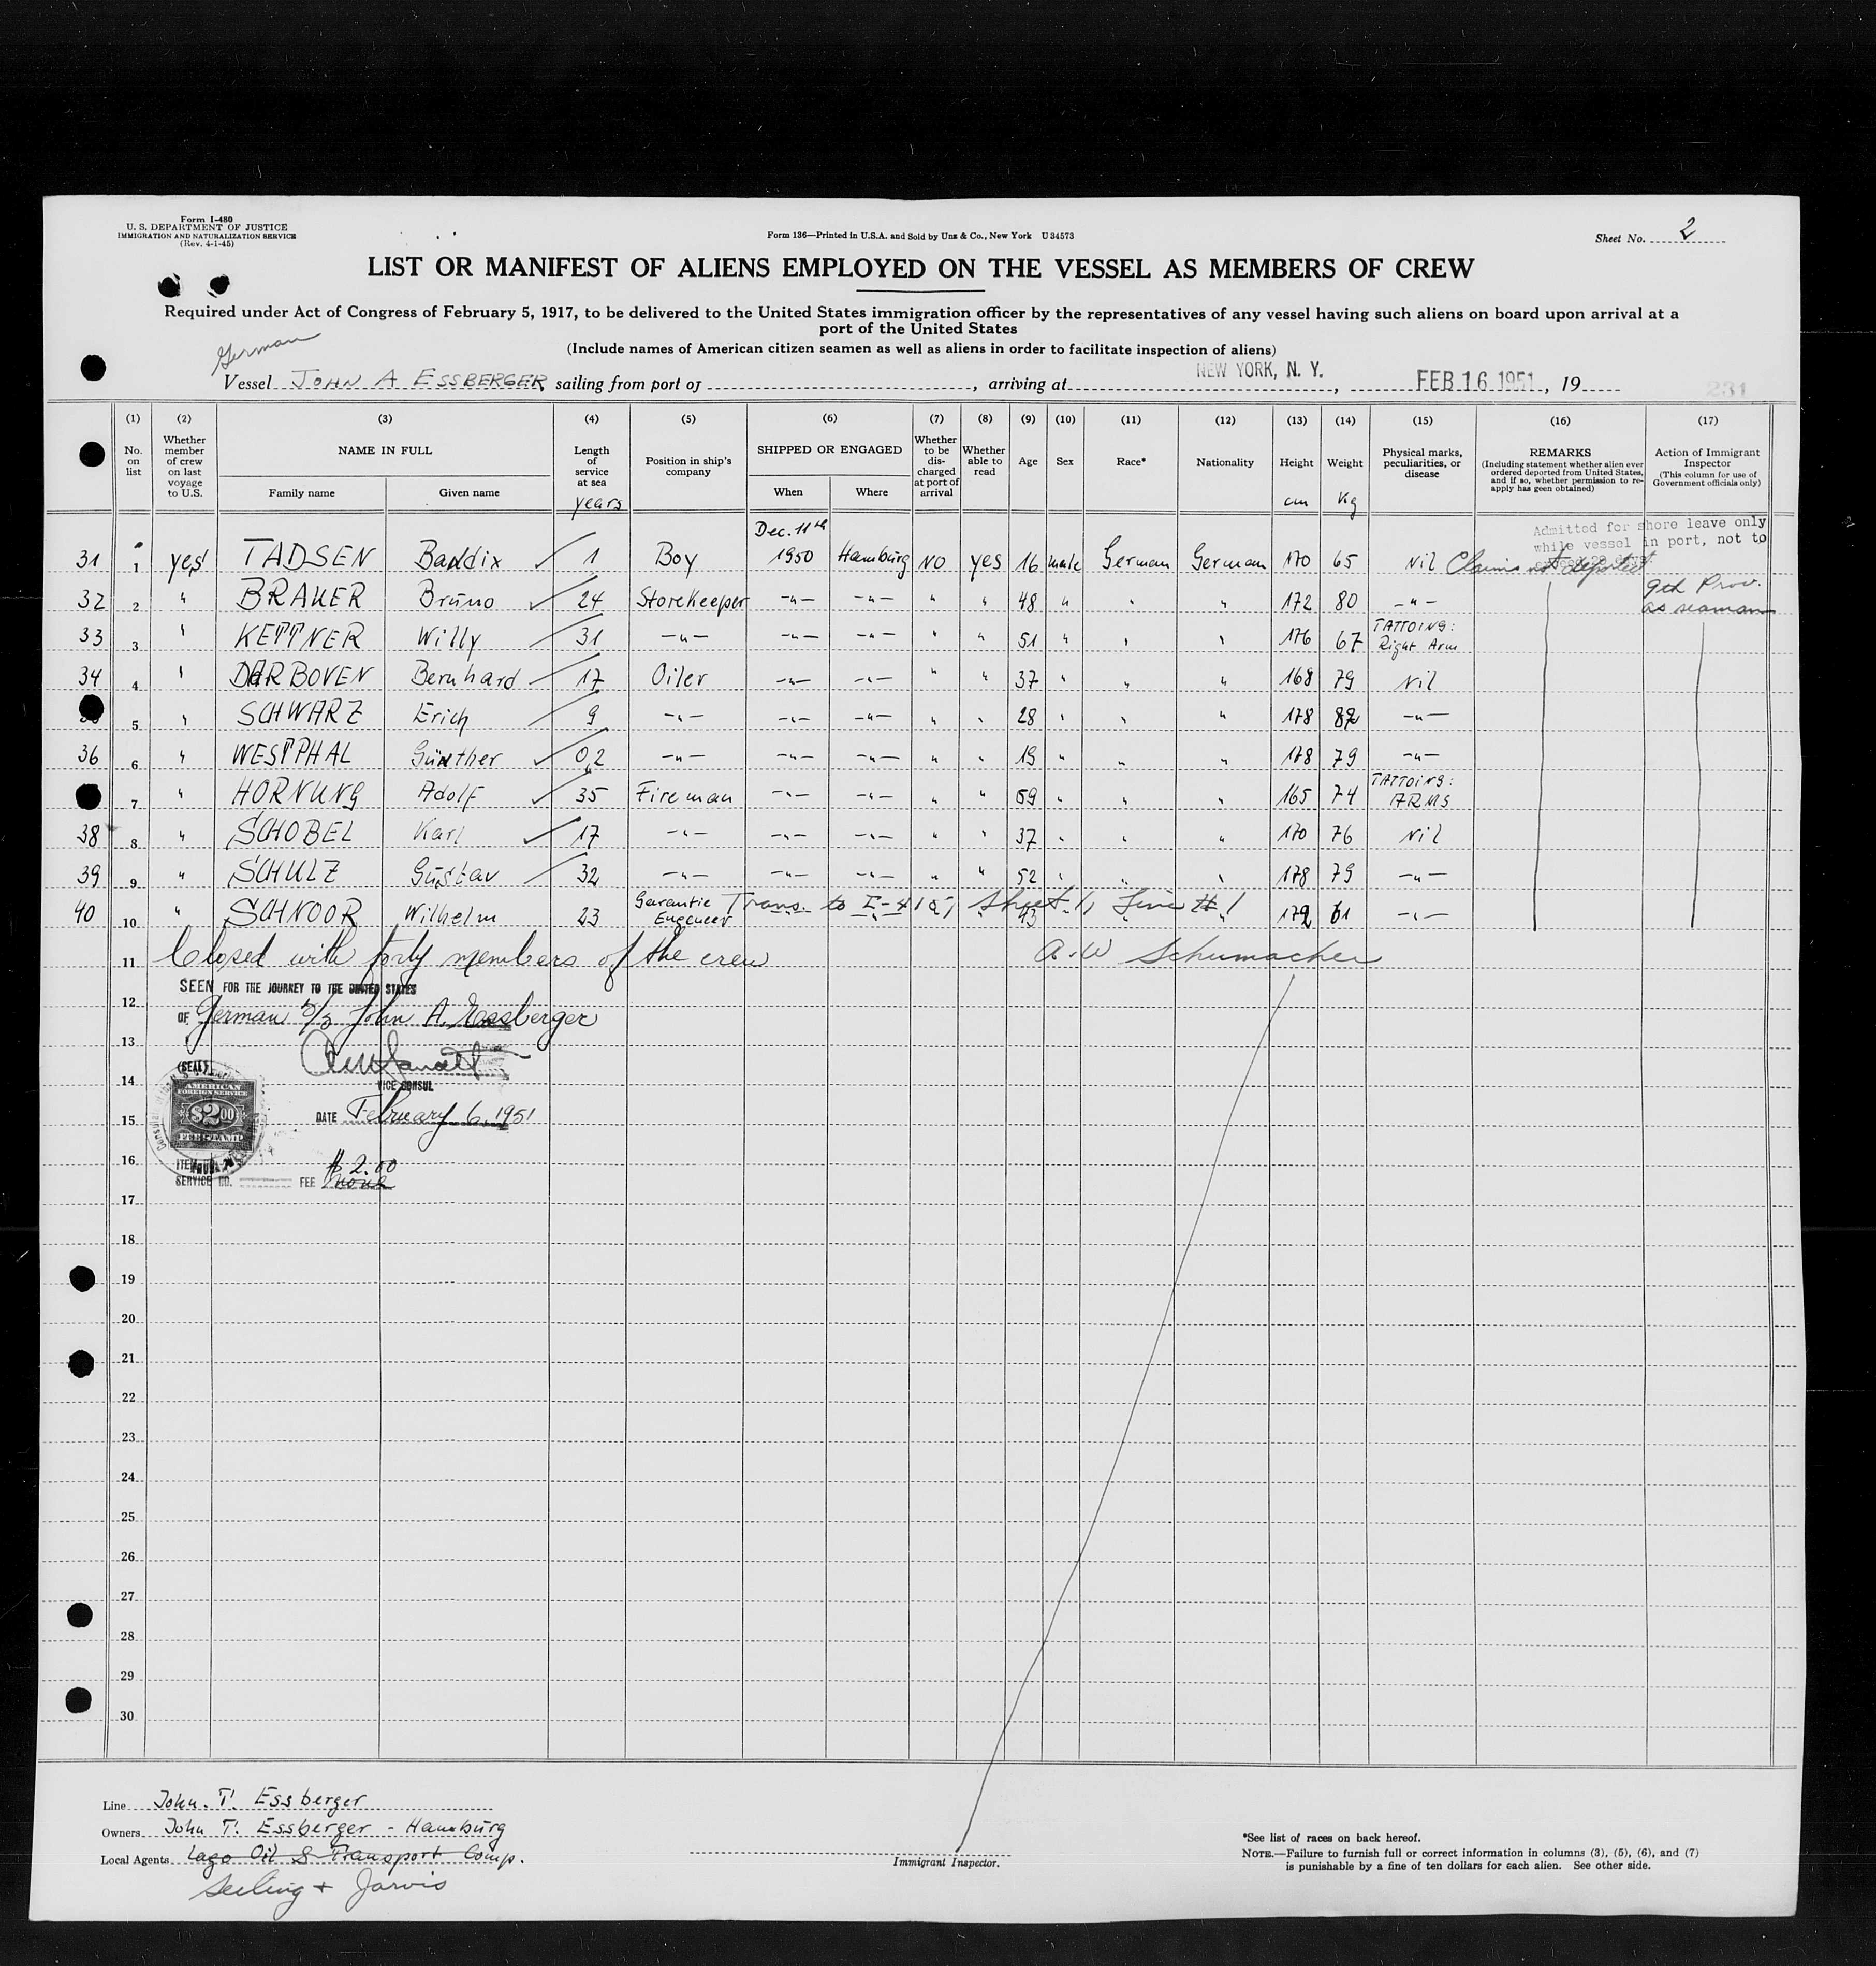 Form I-480
U. S. DEPARTMENT OF JUSTICE
IMMIGRATION AND NATURALIZATION SERVICE
(Rev. 4-1-45)
Form 136—Printed in U.S.A. and Sold by Unz & Co., New York U34573
Sheet No. 2
LIST OR MANIFEST OF ALIENS EMPLOYED ON THE VESSEL AS MEMBERS OF CREW
Required under Act of Congress of February 5, 1917, to be delivered to the United States immigration officer by the representatives of any vessel having such aliens on board upon arrival at a
port of the United States
(Include names of American citizen seamen as well as aliens in order to facilitate inspection of aliens)
German
Vessel JOHN A ESSBERGER sailing from port of , arriving at NEW YORK, N. Y. , FEB 16 1951, 19
231
(1) (2) (3) (4) (5) (6) (7) (8) (9) (10) (11) (12) (13) (14) (15) (16) (17)
No. on list
Whether member of crew on last voyage to U.S.
NAME IN FULL
Family name
Given name
Length of service at sea
years
Position in ship's company
SHIPPED OR ENGAGED
When
Where
Whether to be discharged at port of arrival
Whether able to read
Age
Sex
Race*
Nationality
Height
cm
Weight
Kg
Physical marks, peculiarities, or disease
REMARKS
(Including statement whether alien ever ordered deported from United States, and if so, whether permission to re-apply has geen obtained)
Action of Immigrant Inspector
(This column for use of Government officials only)
Admitted for shore leave only
while vessel in port, not to
Dec. 11th
31 1 yes TADSEN Bandix 1 Boy 1950 Hamburg NO yes 16 male German German 170 65 Nil Claims not deported
9th Prov.
as seaman
32 2 " BRAKER Bruno 24 Storekeeper -"- -"- " " 48 " " " 172 80 -"-
33 3 " KETTNER Willy 31 -"- -"- -"- " " 51 " " " 176 67 TATTOING: Right Arm
34 4 " DARBOVEN Bernhard 17 Oiler -"- -"- " " 37 " " " 168 79 Nil
5 " SCHWARZ Erich 9 -"- -"- -"- " " 28 " " " 178 82 -"-
36 6 " WESTPHAL Günther 0,2 -"- -"- -"- " " 19 " " " 178 79 -"-
7 " HORNUNG Adolf 35 Fireman -"- -"- " " 59 " " " 165 74 TATTOING: ARMS
38 8 " SCHOBEL Karl 17 -"- -"- -"- " " 37 " " " 170 76 Nil
39 9 " SCHULZ Gustav 32 -"- -"- -"- " " 52 " " " 178 79 -"-
40 10 " SCHNOOR Wilhelm 23 Garantie Engeneer Trans. to I- Sheet 1, Line # 1 43 172 61 -"-
11 Closed with forty members of the crew A.W Schumacher
SEEN FOR THE JOURNEY TO THE UNITED STATES
12
OF German S/S John A. Essberger
13
(SEAL)
VICE CONSUL
14
AMERICAN
FOREIGN SERVICE
$2.00
FEE STAMP
15
DATE February 6, 1951
16
$ 2.00
SERVICE NO. FEE none
17
18
19
20
21
22
23
24
25
26
27
28
29
30
Line John. T. Essberger
Owners John T. Essberger - Hamburg
Local Agents Lago Oil & Transport Comp.
Seeling + Jarvis
Immigrant Inspector.
*See list of races on back hereof.
NOTE.—Failure to furnish full or correct information in columns (3), (5), (6), and (7)
is punishable by a fine of ten dollars for each alien. See other side.